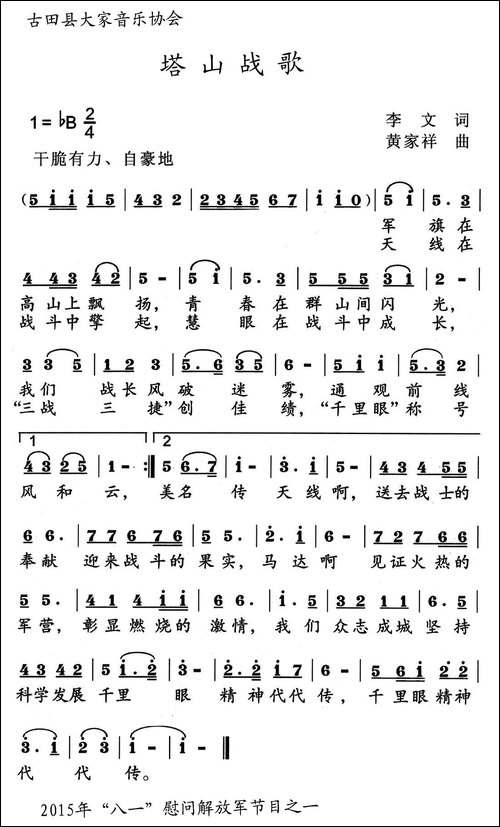 古田县大家音乐协会
塔山战歌
1=♭B 2/4
李文 词
黄家祥 曲
干脆有力、自豪地
(5 i i i 5 | 4 3 2 | 2 3 4 5 6 7 | i i 0) | 5 i | 5. 3 |
军旗在
天线在
4 4 3 4 2 | 5 - | 5 i | 5. 3 | 5 5 5 3 2 1 | 2 - |
高山上飘扬，青春在群山间闪光，
战斗中擎起，慧眼在战斗中成长，
3 3 5 | 1 2 3 | 5. 6 3 5 | 6 - | 5 i i | 5. 3 2 |
我们战长风破迷雾，通观前线
“三战三捷”创佳绩，“千里眼”称号
1 2
4 3 2 5 | 1 - :‖ 5 6. 7 | i - | 3. i | 5 - | 4 3 4 5 5 |
风和云，美名传天线啊，送去战士的
6 6. | 7 7 6 7 6 | 5 5. | 2. i | 6 - | 7 2 7 6 6 |
奉献迎来战斗的果实，马达啊见证火热的
5 5. | 4 1 4 i i | 6 6. | i. 5 | 3 2 1 2 | 6. 5 |
军营，彰显燃烧的激情，我们众志成城坚持
4 3 4 2 | 5 i. 2 | 3 - | 2. 2 i 7 | 6 - | 5 6 i 2 2 |
科学发展千里眼精神代代传，千里眼精神
3. i | 2. 2 | i - | i - ‖
代代传。
2015年“八一”慰问解放军节目之一